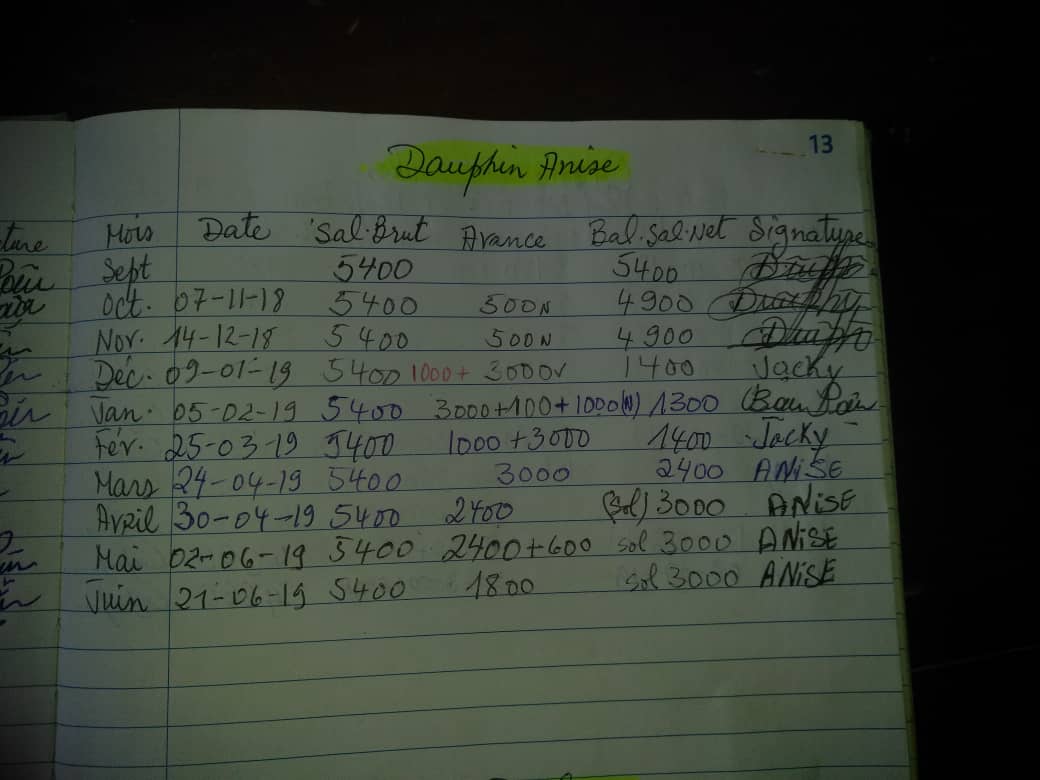 13
Dauphin Anise
Mois Date Sal.Brut Avance Bal.Sal.Net Signature
Sept 5400 5400
Oct. 07-11-18 5400 500N 4900
Nov. 14-12-18 5400 500N 4900
Déc. 09-01-19 5400 1000+ 3000 1400 Jacky
Jan. 05-02-19 5400 3000+100+1000(N) 1300
Fév. 25-03-19 5400 1000+3000 1400 Jacky
Mars 24-04-19 5400 3000 2400 ANiSE
Avril 30-04-19 5400 2400 (Sol) 3000 ANiSE
Mai 02-06-19 5400 2400+600 sol 3000 ANiSE
Juin 21-06-19 5400 1800 sol 3000 ANiSE